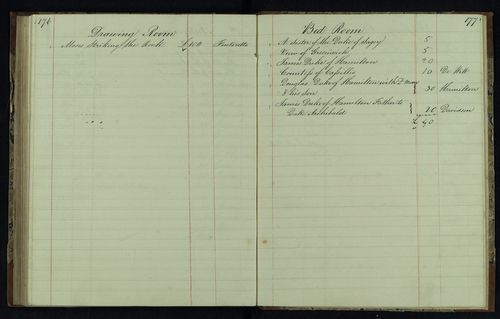 176
Drawing Room
Moses Striking the Rock £100 Tintoretto
177
Bed Room
A sister of the Duke of 5
View of Greenwich 5
James Duke of Hamilton 20
Countess of Cassillis 10 De Witt
Douglas Duke of Hamilton with Dr Moore
& his son 30 Hamilton
James Duke of Hamilton Father to
Duke Archibald 20 Davidson
£ 90